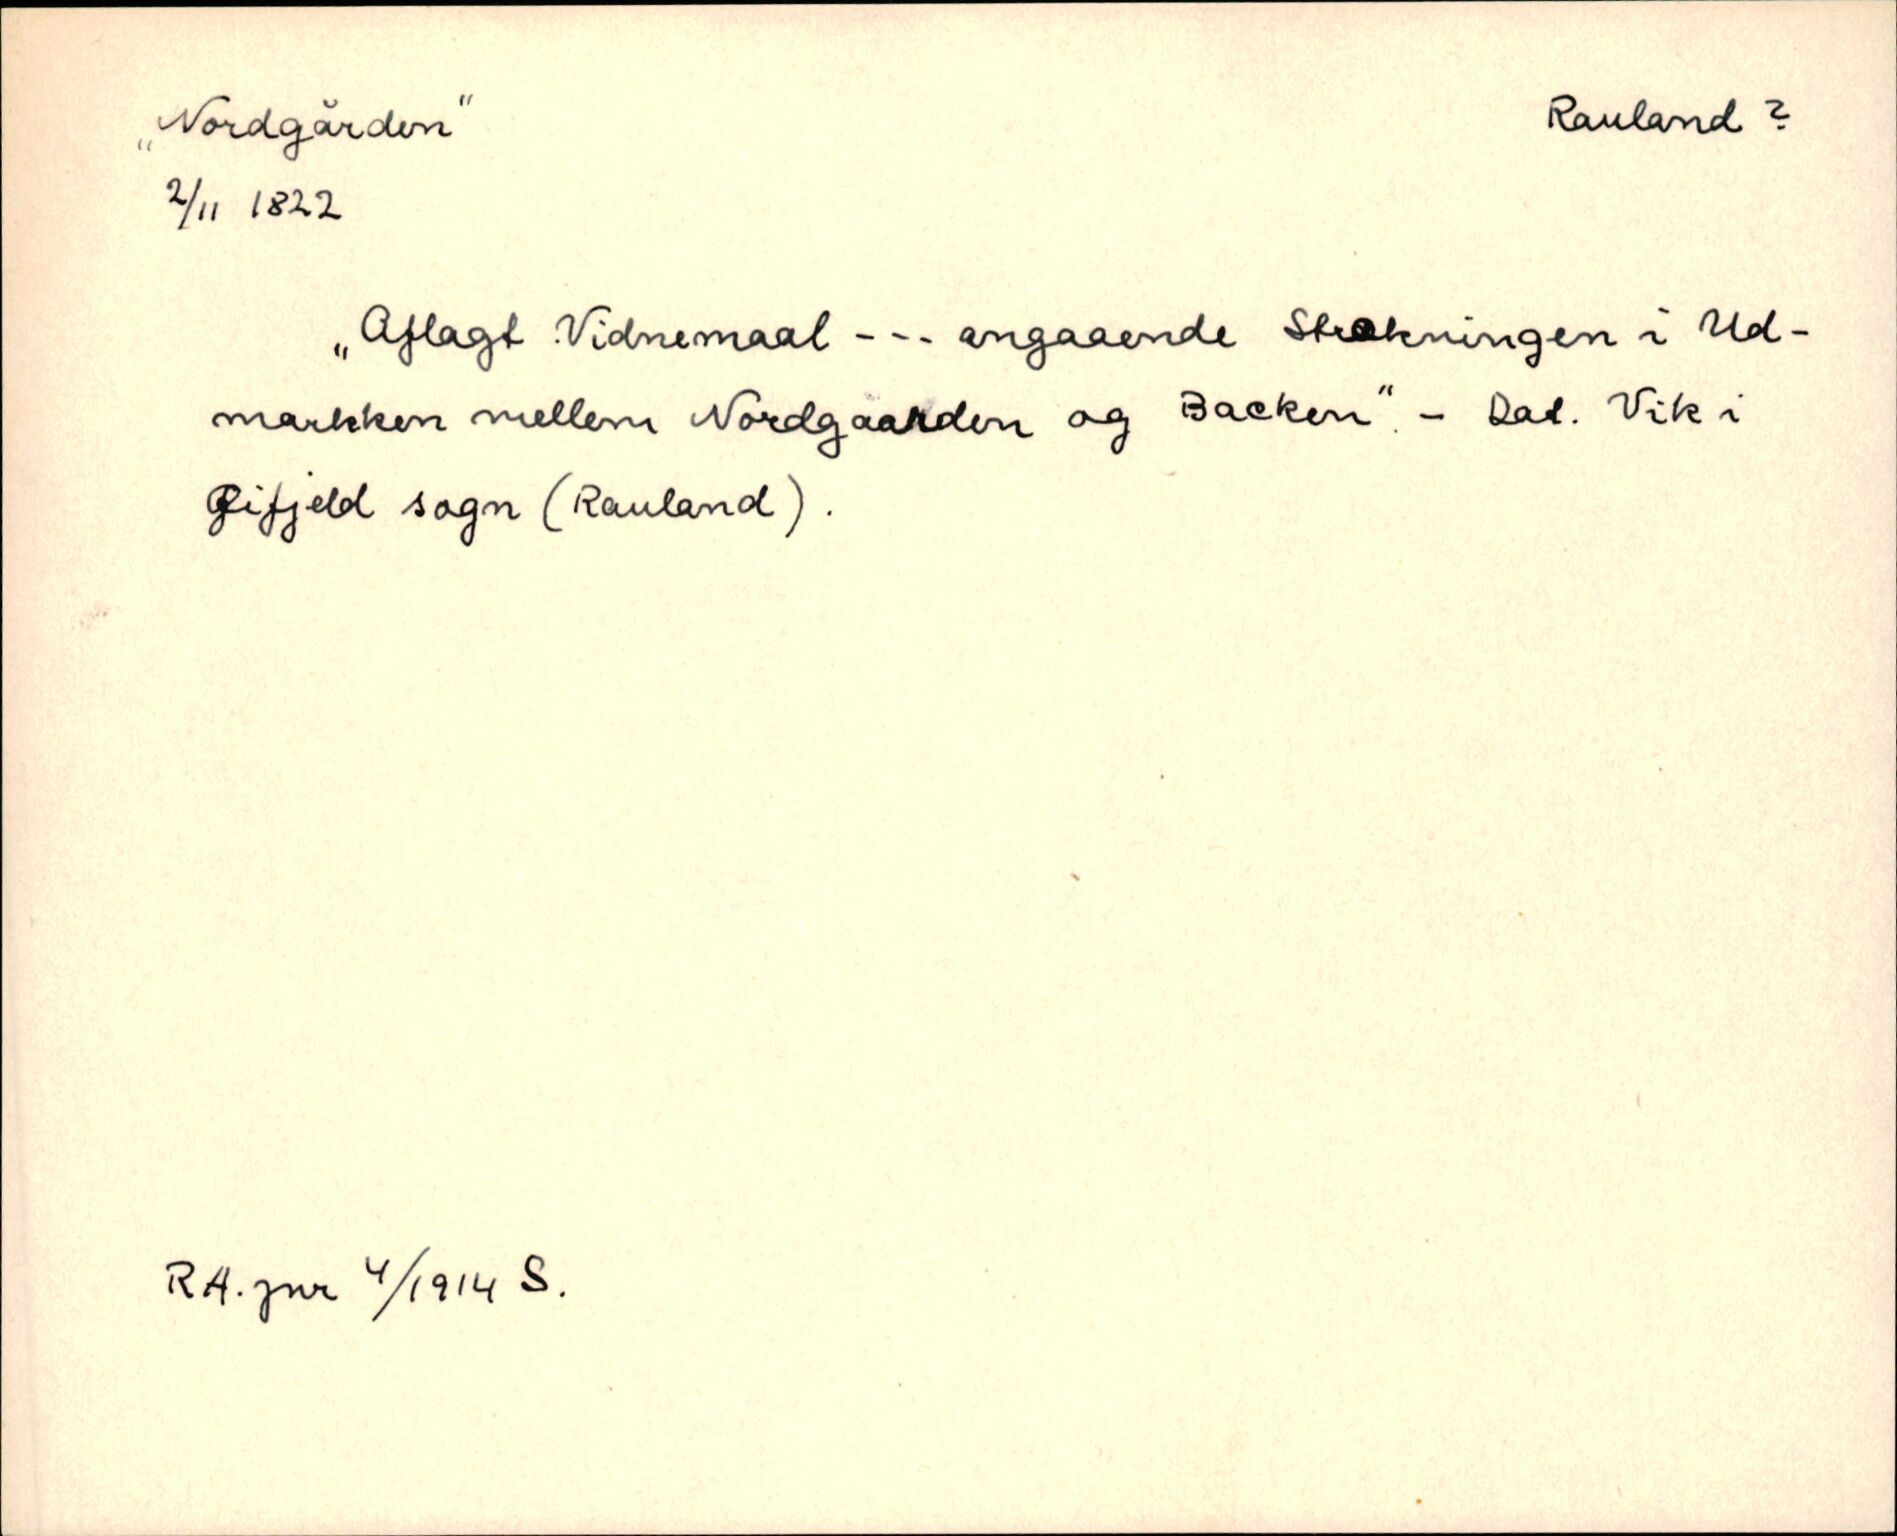 „Nordgården" Rauland?
2/11 1822
„Aflagt Vidnemaal --- angaaende Strekningen i Ud-
markken mellem Nordgaarden og Backen". - Dat. Vik i
Øifjeld sogn (Rauland).
RA. jnr 4/1914 S.